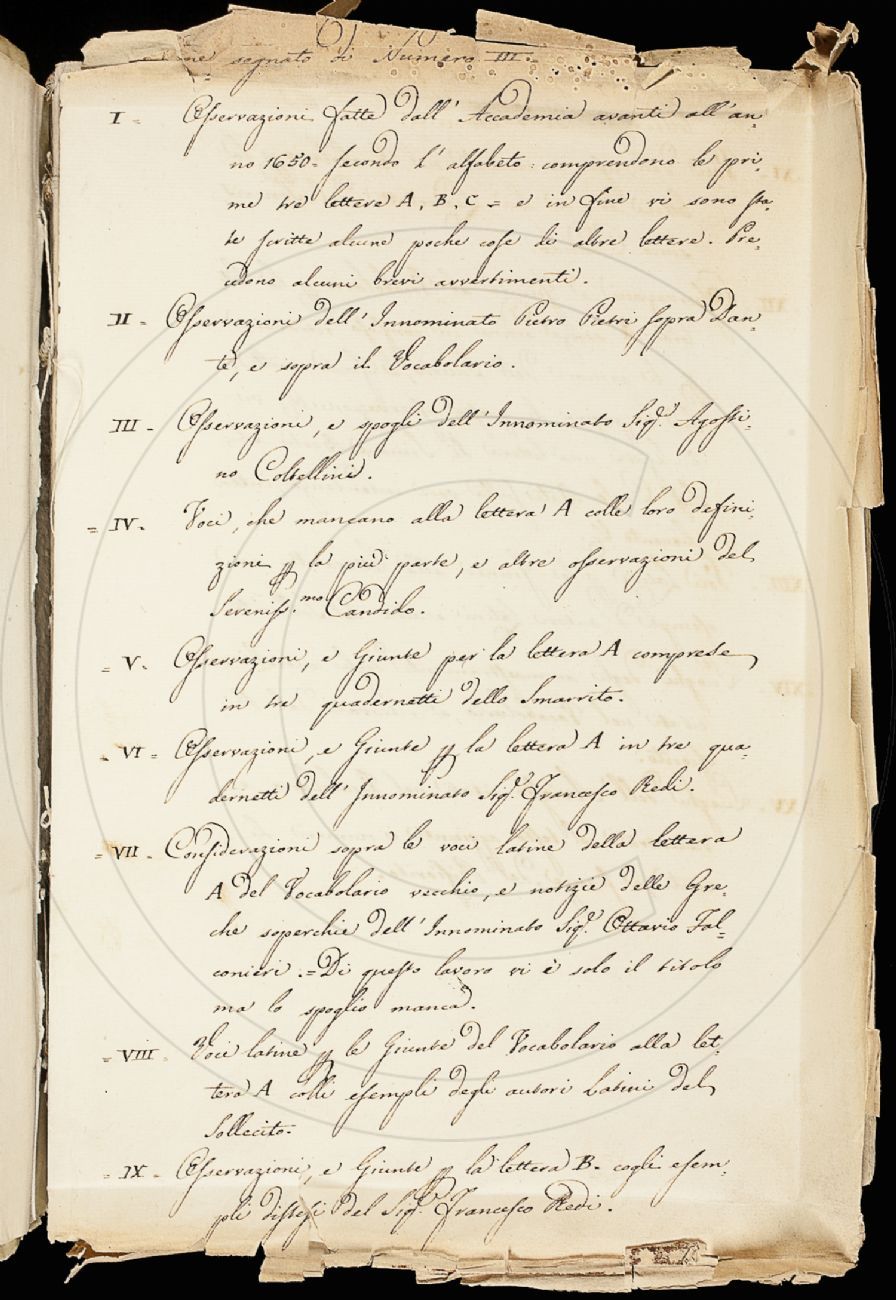 segnato di Numero III =
I = Osservazioni fatte dall' Accademia avanti all'an-
no 1650 = secondo l' alfabeto: comprendono le pri-
me tre lettere A, B, C = e in fine vi sono sta-
te scritte alcune poche cose di altre lettere. Pre-
cedono alcuni brevi avvertimenti.
II = Osservazioni dell' Innominato Pietro Pietri sopra Dan-
te, e sopra il Vocabolario.
III = Osservazioni, e spogli dell' Innominato Sig.r Agosti-
no Coltellini.
= IV = Voci, che mancano alla lettera A colle loro defini-
zioni ꝑ la più parte, e altre osservazioni del
Sereniss.mo Candido.
= V = Osservazioni, e Giunte per la lettera A comprese
in tre quadernetti dello Smarrito.
= VI = Osservazioni, e Giunte ꝑ la lettera A in tre qua-
dernetti dell' Innominato Sig.r Francesco Redi.
= VII = Considerazioni sopra le voci latine della lettera
A del Vocabolario vecchio, e notizie delle Gre-
che soperchie dell' Innominato Sig.r Ottavio Fal-
conieri. = Di questo lavoro vi è solo il titolo
ma lo spoglio manca.
= VIII = Voci latine ꝑ le Giunte del Vocabolario alla let-
tera A colli esempli degli autori Latini del
Sollecito.
= IX = Osservazioni, e Giunte ꝑ la lettera B. cogli esem-
pli distesi del Sig.r Francesco Redi.